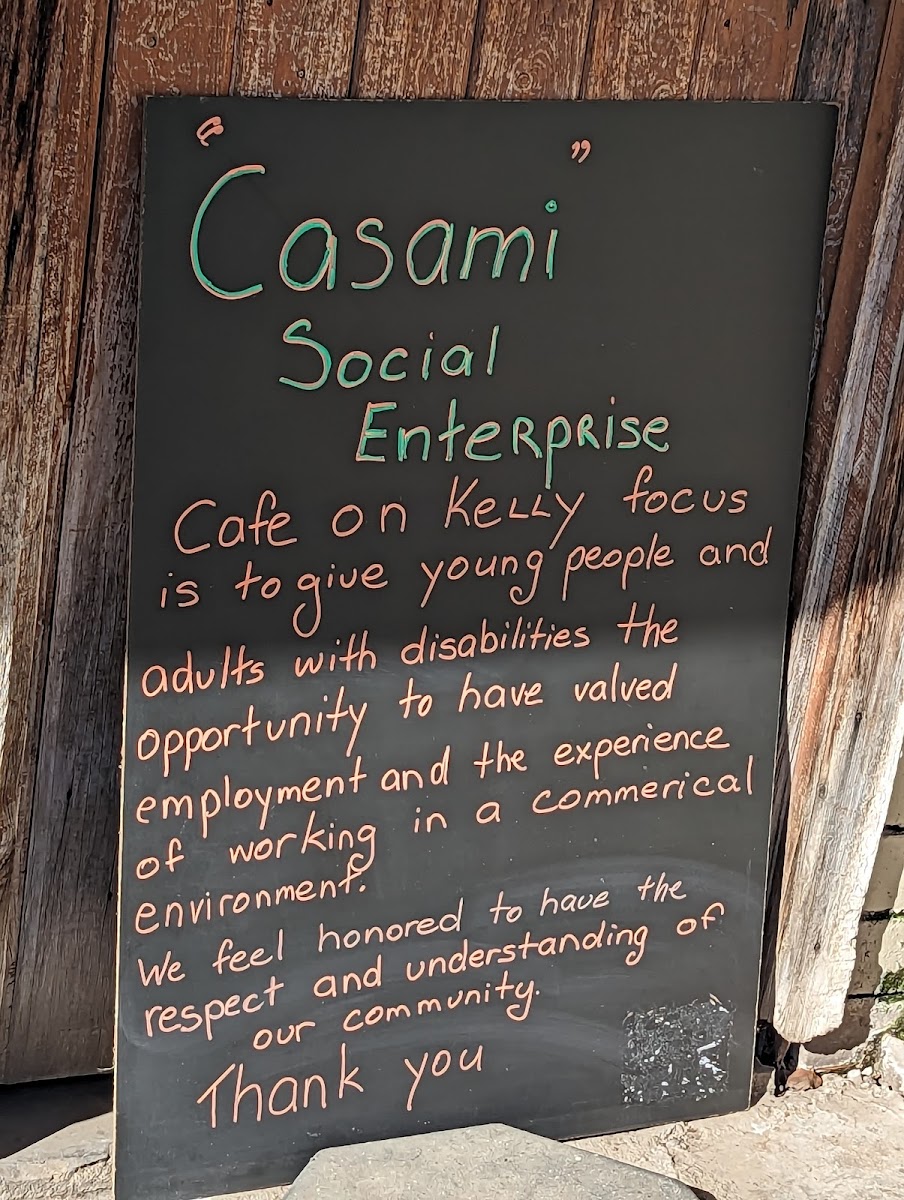 "Casami"
Social
Enterprise
Cafe on Kelly focus
is to give young people and
adults with disabilities the
opportunity to have valved
employment and the experience
of working in a commerical
environment.
We feel honored to have the
respect and understanding of
our community.
Thank you